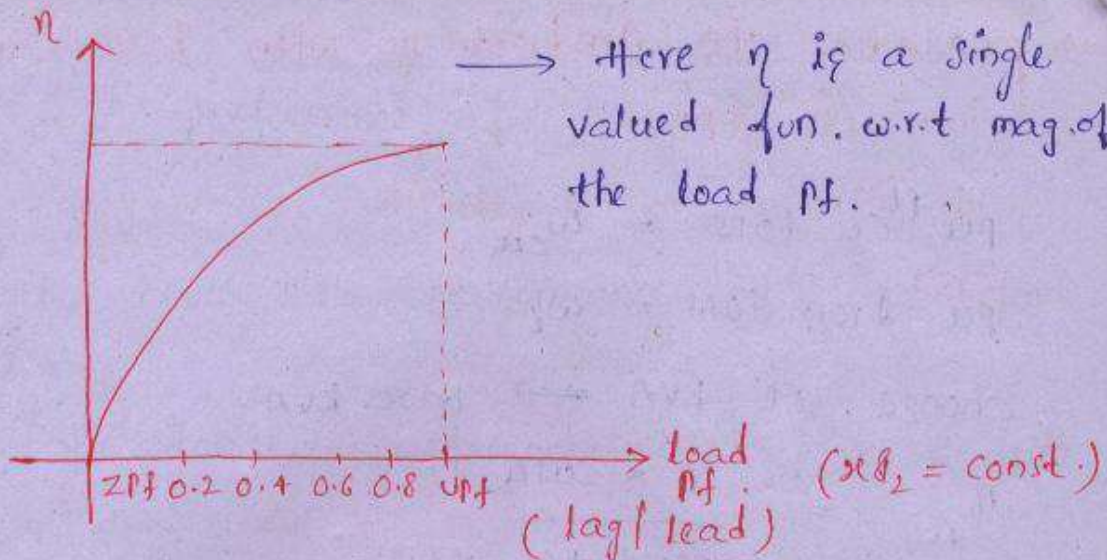 η
→ Here η is a single
valued fun. w.r.t mag. of
the load Pf.
ZPf 0.2 0.4 0.6 0.8 UPf
load
Pf. (xs₂ = const.)
(lag/lead)